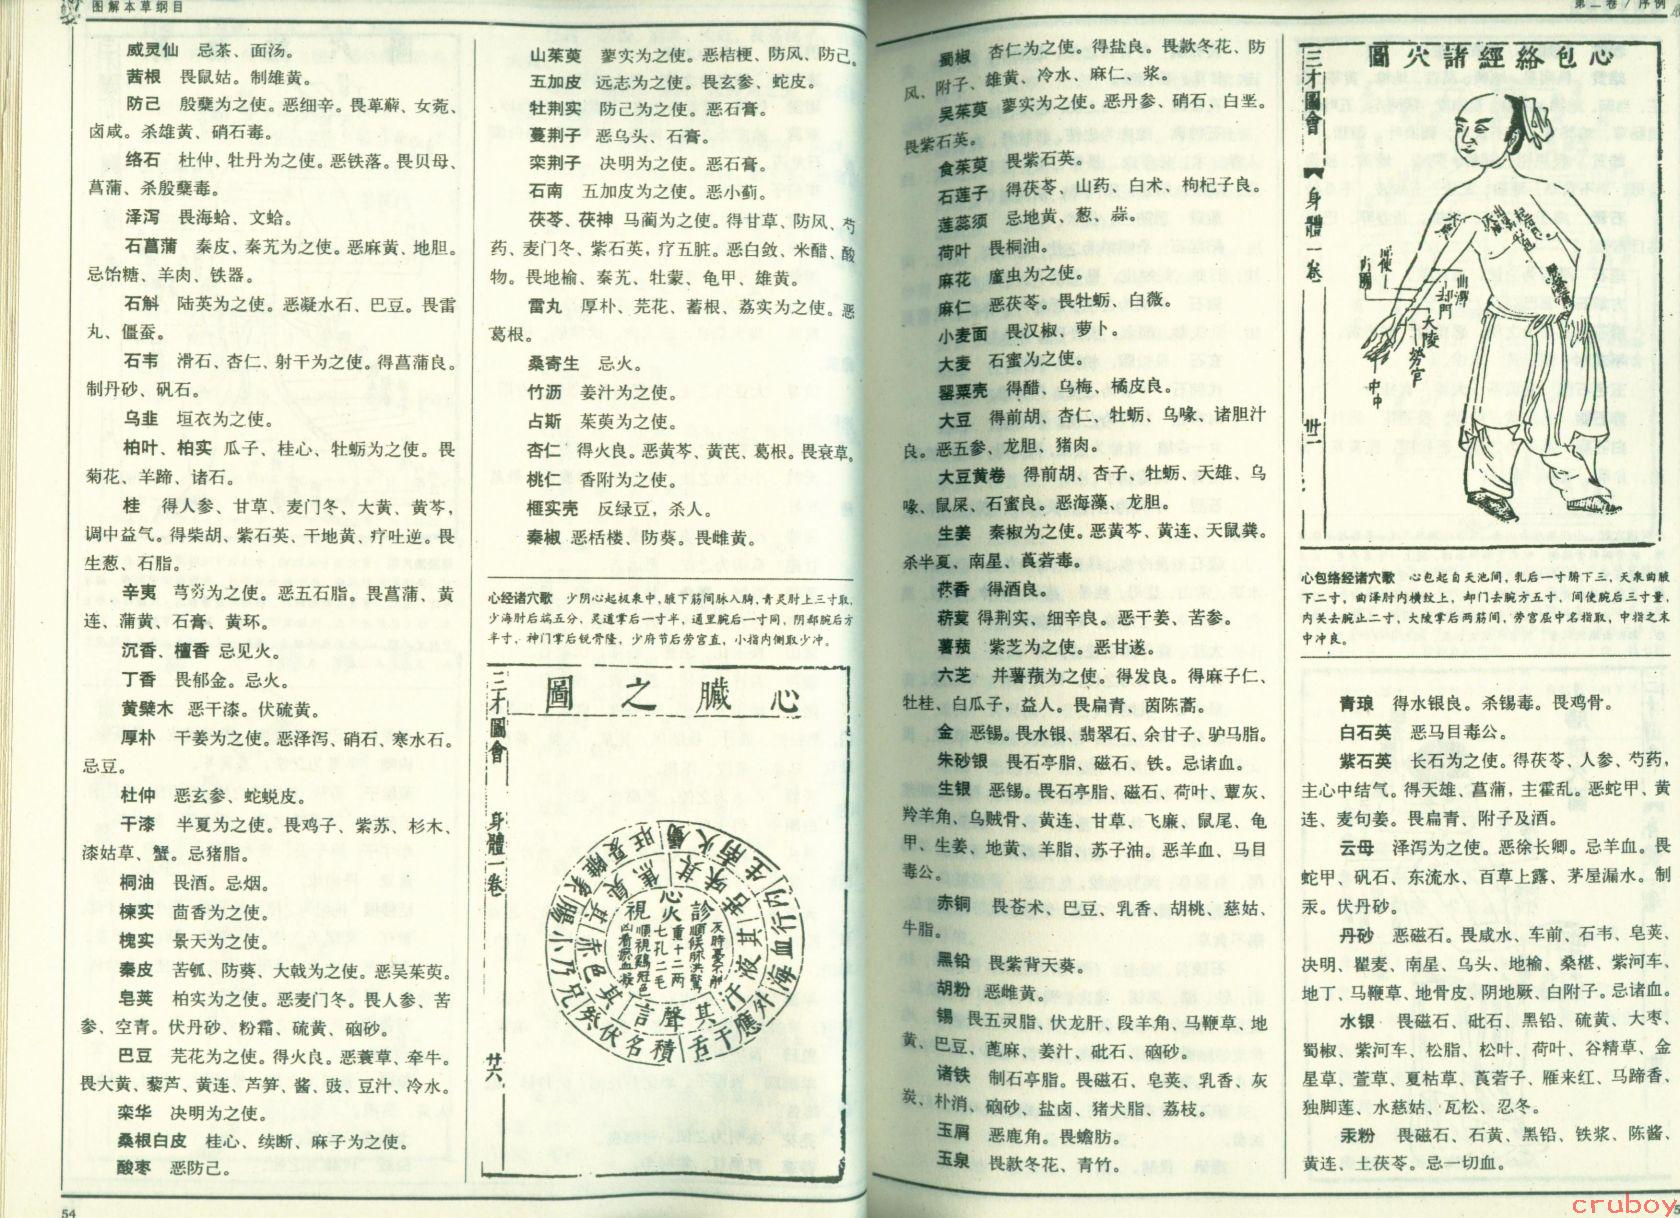 图解本草纲目
威灵仙 忌茶、面汤。
茜根 畏鼠姑。制雄黄。
防己 殷蘖为之使。恶细辛。畏萆薢、女菀、
卤咸。杀雄黄、硝石毒。
络石 杜仲、牡丹为之使。恶铁落。畏贝母、
菖蒲、杀殷蘖毒。
泽泻 畏海蛤、文蛤。
石菖蒲 秦皮、秦艽为之使。恶麻黄、地胆。
忌饴糖、羊肉、铁器。
石斛 陆英为之使。恶凝水石、巴豆。畏雷
丸、僵蚕。
石韦 滑石、杏仁、射干为之使。得菖蒲良。
制丹砂、矾石。
乌韭 垣衣为之使。
柏叶、柏实 瓜子、桂心、牡蛎为之使。畏
菊花、羊蹄、诸石。
桂 得人参、甘草、麦门冬、大黄、黄芩，
调中益气。得柴胡、紫石英、干地黄、疗吐逆。畏
生葱、石脂。
辛夷 芎䓖为之使。恶五石脂。畏菖蒲、黄
连、蒲黄、石膏、黄环。
沉香、檀香 忌见火。
丁香 畏郁金。忌火。
黄檗木 恶干漆。伏硫黄。
厚朴 干姜为之使。恶泽泻、硝石、寒水石。
忌豆。
杜仲 恶玄参、蛇蜕皮。
干漆 半夏为之使。畏鸡子、紫苏、杉木、
漆姑草、蟹。忌猪脂。
桐油 畏酒。忌烟。
楝实 茴香为之使。
槐实 景天为之使。
秦皮 苦瓠、防葵、大戟为之使。恶吴茱萸。
皂荚 柏实为之使。恶麦门冬。畏人参、苦
参、空青。伏丹砂、粉霜、硫黄、硇砂。
巴豆 芫花为之使。得火良。恶蘘草、牵牛。
畏大黄、藜芦、黄连、芦笋、酱、豉、豆汁、冷水。
栾华 决明为之使。
桑根白皮 桂心、续断、麻子为之使。
酸枣 恶防己。
54
山茱萸 蓼实为之使。恶桔梗、防风、防己。
五加皮 远志为之使。畏玄参、蛇皮。
牡荆实 防己为之使。恶石膏。
蔓荆子 恶乌头、石膏。
栾荆子 决明为之使。恶石膏。
石南 五加皮为之使。恶小蓟。
茯苓、茯神 马蔺为之使。得甘草、防风、芍
药、麦门冬、紫石英，疗五脏。恶白敛、米醋、酸
物。畏地榆、秦艽、牡蒙、龟甲、雄黄。
雷丸 厚朴、芫花、蓄根、荔实为之使。恶
葛根。
桑寄生 忌火。
竹沥 姜汁为之使。
占斯 茱萸为之使。
杏仁 得火良。恶黄芩、黄芪、葛根。畏蓑草。
桃仁 香附为之使。
榧实壳 反绿豆，杀人。
秦椒 恶栝楼、防葵。畏雌黄。
心经诸穴歌 少阴心起极泉中，腋下筋间脉入胸，青灵肘上三寸取，
少海肘后端五分，灵道掌后一寸半，通里腕后一寸同，阴郄腕后方
半寸，神门掌后锐骨隆，少府节后劳宫直，小指内侧取少冲。
心臟之圖
三才圖會
身體一卷
廿六
心火重十二兩
七孔二毛
第二卷／序例
蜀椒 杏仁为之使。得盐良。畏款冬花、防
风、附子、雄黄、冷水、麻仁、浆。
吴茱萸 蓼实为之使。恶丹参、硝石、白垩。
畏紫石英。
食茱萸 畏紫石英。
石莲子 得茯苓、山药、白术、枸杞子良。
莲蕊须 忌地黄、葱、蒜。
荷叶 畏桐油。
麻花 䗪虫为之使。
麻仁 恶茯苓。畏牡蛎、白薇。
小麦面 畏汉椒、萝卜。
大麦 石蜜为之使。
罂粟壳 得醋、乌梅、橘皮良。
大豆 得前胡、杏仁、牡蛎、乌喙、诸胆汁
良。恶五参、龙胆、猪肉。
大豆黄卷 得前胡、杏子、牡蛎、天雄、乌
喙、鼠屎、石蜜良。恶海藻、龙胆。
生姜 秦椒为之使。恶黄芩、黄连、天鼠粪。
杀半夏、南星、莨菪毒。
蘹香 得酒良。
菥蓂 得荆实、细辛良。恶干姜、苦参。
薯蓣 紫芝为之使。恶甘遂。
六芝 并薯蓣为之使。得发良。得麻子仁、
牡桂、白瓜子，益人。畏扁青、茵陈蒿。
金 恶锡。畏水银、翡翠石、余甘子、驴马脂。
朱砂银 畏石亭脂、磁石、铁。忌诸血。
生银 恶锡。畏石亭脂、磁石、荷叶、蕈灰、
羚羊角、乌贼骨、黄连、甘草、飞廉、鼠尾、龟
甲、生姜、地黄、羊脂、苏子油。恶羊血、马目
毒公。
赤铜 畏苍术、巴豆、乳香、胡桃、慈姑、
牛脂。
黑铅 畏紫背天葵。
胡粉 恶雌黄。
锡 畏五灵脂、伏龙肝、段羊角、马鞭草、地
黄、巴豆、蓖麻、姜汁、砒石、硇砂。
诸铁 制石亭脂。畏磁石、皂荚、乳香、灰
炭、朴消、硇砂、盐卤、猪犬脂、荔枝。
玉屑 恶鹿角。畏蟾肪。
玉泉 畏款冬花、青竹。
心包絡經諸穴圖
三才圖會
身體一卷
卅二
曲澤
郄門
大陵
勞宮
中冲
心包络经诸穴歌 心包起自天池间，乳后一寸腑下三，天泉曲腋
下二寸，曲泽肘内横纹上，郄门去腕方五寸，间使腕后三寸量，
内关去腕止二寸，大陵掌后两筋间，劳宫屈中名指取，中指之末
中冲良。
青琅 得水银良。杀锡毒。畏鸡骨。
白石英 恶马目毒公。
紫石英 长石为之使。得茯苓、人参、芍药，
主心中结气。得天雄、菖蒲，主霍乱。恶蛇甲、黄
连、麦句姜。畏扁青、附子及酒。
云母 泽泻为之使。恶徐长卿。忌羊血。畏
蛇甲、矾石、东流水、百草上露、茅屋漏水。制
汞。伏丹砂。
丹砂 恶磁石。畏咸水、车前、石韦、皂荚、
决明、瞿麦、南星、乌头、地榆、桑椹、紫河车、
地丁、马鞭草、地骨皮、阴地厥、白附子。忌诸血。
水银 畏磁石、砒石、黑铅、硫黄、大枣、
蜀椒、紫河车、松脂、松叶、荷叶、谷精草、金
星草、萱草、夏枯草、莨菪子、雁来红、马蹄香、
独脚莲、水慈姑、瓦松、忍冬。
汞粉 畏磁石、石黄、黑铅、铁浆、陈酱、
黄连、土茯苓。忌一切血。
cruboy